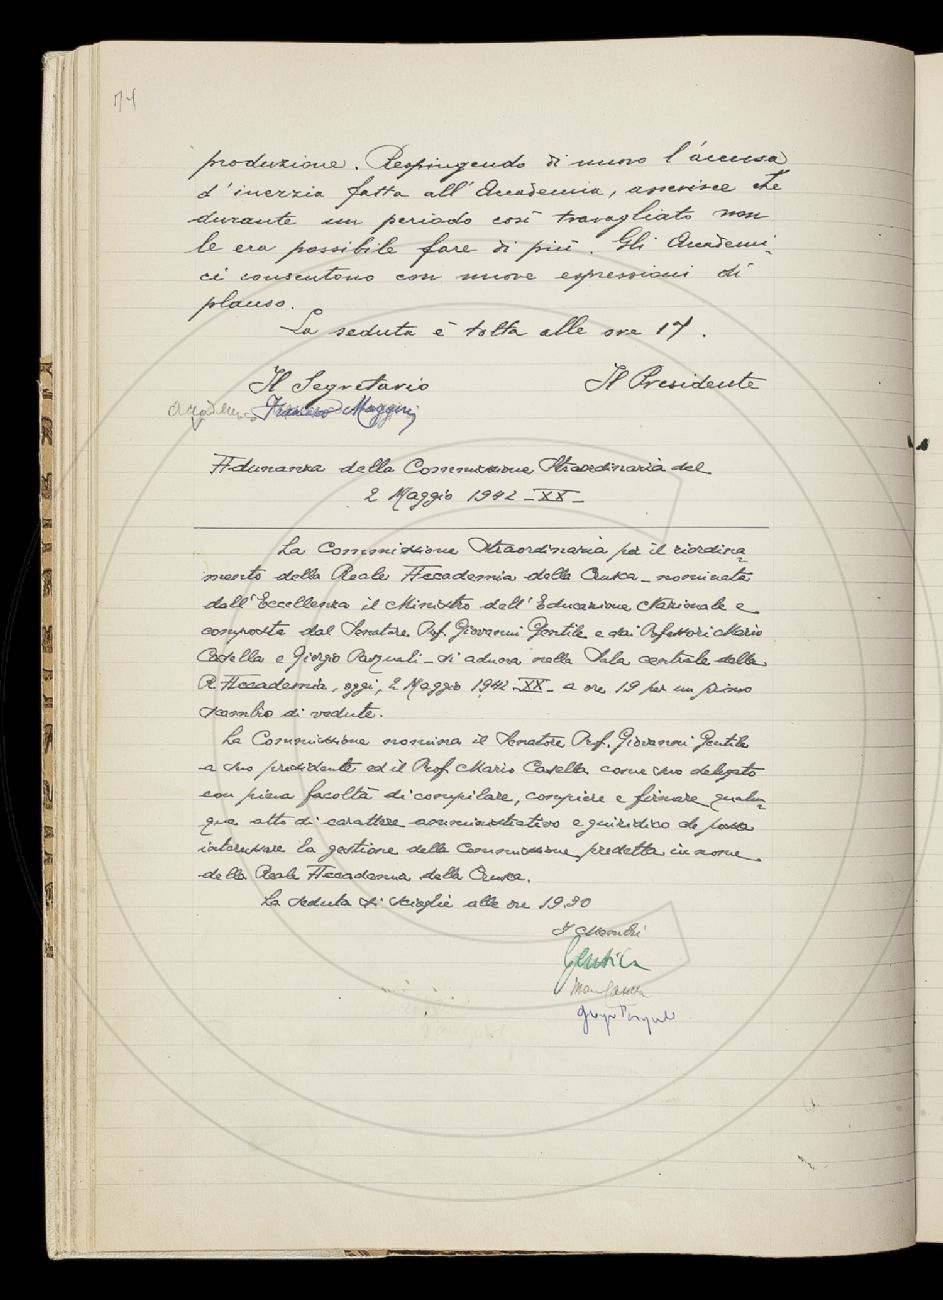 74
produzione. Respingendo di nuovo l'accusa
d'inerzia fatta all'Accademia, asserisce che
durante un periodo così travagliato non
le era possibile fare di più. Gli Accademi-
ci consentono con nuove espressioni di
plauso.
La seduta è tolta alle ore 17.
Il Segretario Il Presidente
Francesco Maggini
Adunanza della Commissione Straordinaria del
2 Maggio 1942 - XX -
La Commissione Straordinaria per il riordina-
mento della Reale Accademia della Crusca - nominata
dall'Eccellenza il Ministro dell'Educazione Nazionale e
composta dal Senatore Prof. Giovanni Gentile e dai Professori Mario
Casella e Giorgio Pasquali - si aduna nella Sala centrale della
R. Accademia, oggi, 2 Maggio 1942 - XX - a ore 19 per un primo
scambio di vedute.
La Commissione nomina il Senatore Prof. Giovanni Gentile
a suo presidente ed il Prof. Mario Casella come suo delegato
con piena facoltà di compilare, compiere e firmare qualun-
que atto di carattere amministrativo e giuridico che possa
interessare la gestione della Commissione predetta in nome
della Reale Accademia della Crusca.
La seduta si scioglie alle ore 19.30
I Membri
Gentile
Mario Casella
Giorgio Pasquali